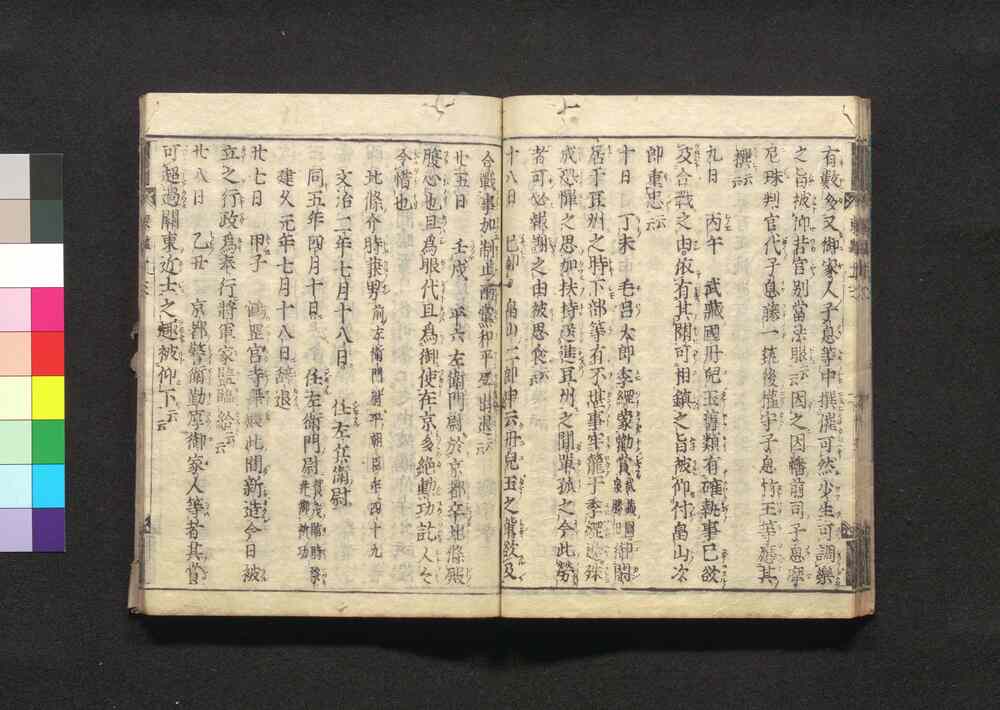 有數多又御家人子息等中撰催可然少生可調樂
之旨被仰若宮別當法眼云云因之因幡前司子息摩
尼珠判官代子息藤一筑後權守子息竹王等應其
撰云云
九日 丙午 武藏國丹兒玉黨類有確執事已欲
及合戰之由依有其聞可相鎮之旨被仰付畠山次
郎重忠云云
十日 丁未 毛呂太郎季綱蒙勸賞武藏國泉勝田御閑
居于豆州之時下部等有不堪事牢籠于季綱邊殊
成恐惶之思加扶持送進豆州之間單孤之今此勞
者可必報謝之由被思食云云
十八日 己卯 畠山二郎申云丹兒玉之黨欲及
合戰事加制止兩黨和平退出退云云
廿五日 壬戌 平六左衛門尉於京都卒北條殿
腹心也且爲眼代且爲御使在京多絶勳功訃人々
令惜也
北條介時兼男 前左衛門尉平朝臣年四十九
文治二年七月十八日 任左兵衛尉
同五年四月十日 任左衛門尉賀茂臨時祭
建久元年七月十八日辭退
廿七日 甲子 官寺 此間新造今日被
立之行政爲奉行將軍家監臨給云云
廿八日 乙丑 京都警衛勤厚御家人等者其賞
可超過關東近士之趣被仰下云云